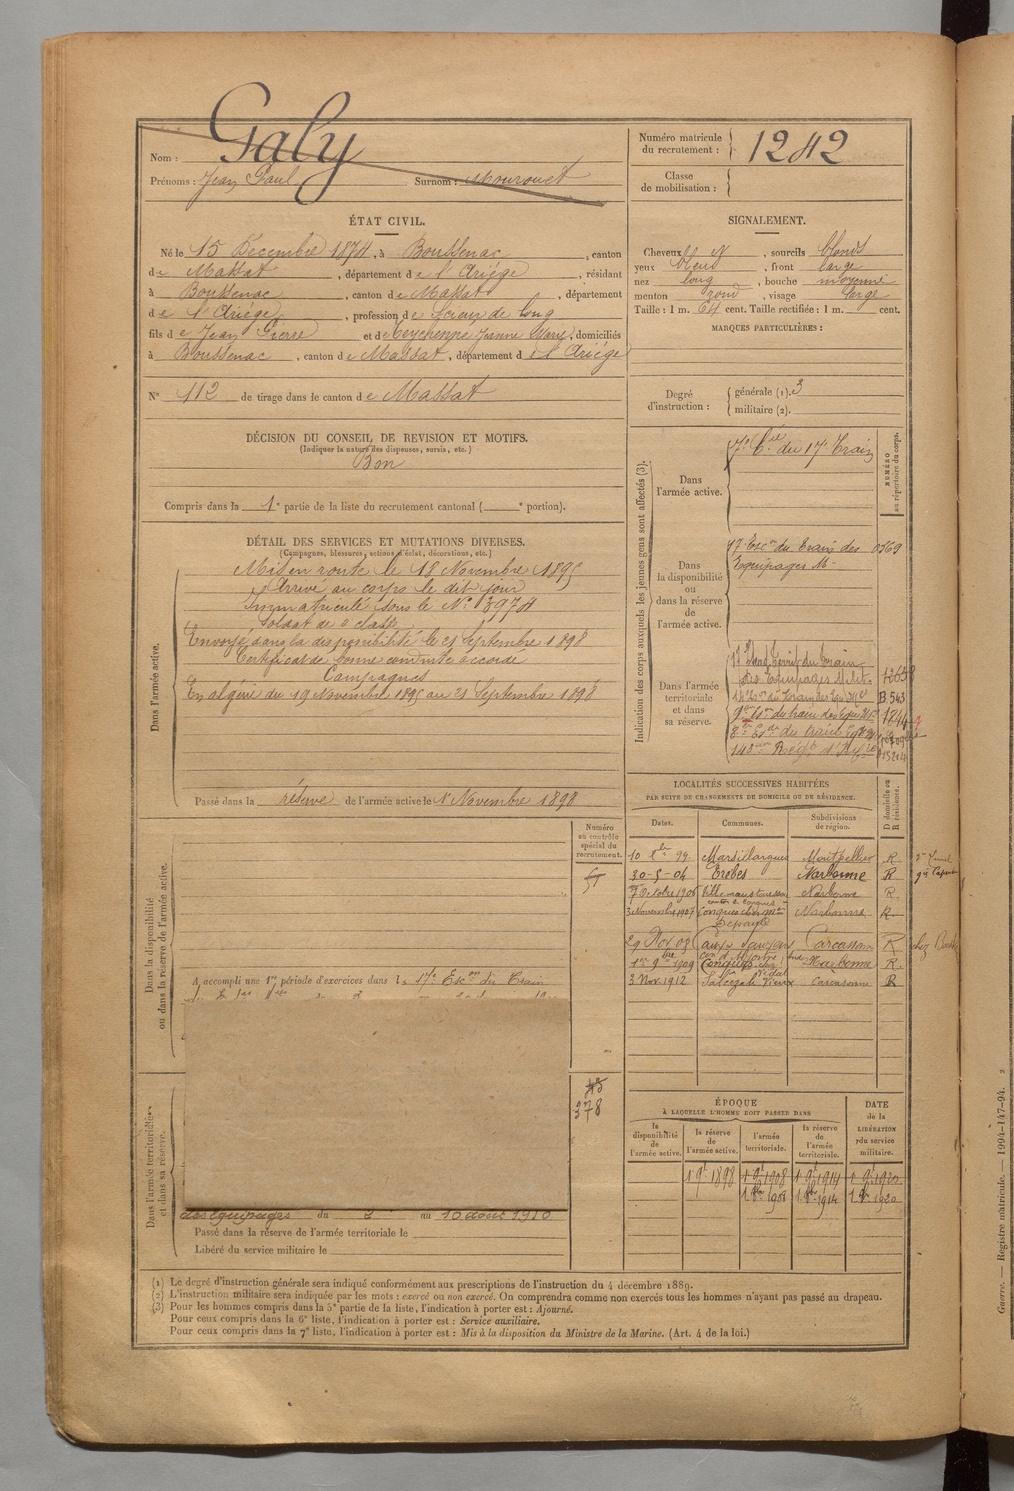 Nom : Galy
Prénoms : Jean Paul Surnom : Mourouet
Numéro matricule du recrutement : 1242
Classe de mobilisation :
ÉTAT CIVIL.
Né le 15 Décembre 1874, à Boussenac, canton
de Massat, département de l'Ariège, résidant
à Boussenac, canton de Massat, département
de l'Ariège, profession de Scieur de long
fils de Jean Pierre et de Jeanne Marie, domiciliés
à Boussenac, canton de Massat, département de l'Ariège
N° 112 de tirage dans le canton de Massat
SIGNALEMENT.
Cheveux bl, sourcils blonds
yeux bleus, front large
nez long, bouche moyenne
menton rond, visage large
Taille : 1 m. 64 cent. Taille rectifiée : 1 m. cent.
MARQUES PARTICULIÈRES :
Degré d'instruction :
générale (1). 3
militaire (2).
DÉCISION DU CONSEIL DE REVISION ET MOTIFS.
(Indiquer la nature des dispenses, sursis, etc.)
Bon
Compris dans la 1e partie de la liste du recrutement cantonal ( e portion).
DÉTAIL DES SERVICES ET MUTATIONS DIVERSES.
(Campagnes, blessures, actions d'éclat, décorations, etc.)
Dans l'armée active.
Mis en route le 18 Novembre 1895
Arrivé au corps le dit jour
Immatriculé sous le N° 3974
Soldat de 2e classe
Envoyé dans la disponibilité le 21 Septembre 1898
Certificat de bonne conduite accordé
Campagnes
En algérie du 19 Novembre 1895 au 21 Septembre 1898
Passé dans la réserve de l'armée active le 1r Novembre 1898
Dans la disponibilité ou dans la réserve de l'armée active.
Numéro au contrôle spécial du recrutement.
A accompli une 1re période d'exercices dans le 17e Escon du Train
Dans l'armée territoriale et dans sa réserve.
378
des équipages du 2 au 10 août 1910
Passé dans la réserve de l'armée territoriale le
Libéré du service militaire le
Indication des corps auxquels les jeunes gens sont affectés (3).
NUMÉRO au répertoire du corps.
Dans l'armée active.
7e Cie du 17e Train
Dans la disponibilité ou dans la réserve de l'armée active.
17e Escon du Train des 0569
Equipages Mres
Dans l'armée territoriale et dans sa réserve.
17e Escad. Territ. du Train
des Equipages Milit.
B 543
LOCALITÉS SUCCESSIVES HABITÉES
PAR SUITE DE CHANGEMENTS DE DOMICILE OU DE RÉSIDENCE.
D domicile ou R résidence.
Dates. Communes. Subdivisions de région.
10 8bre 99 Marsillargues Montpellier R
30-5-04 Trèbes Narbonne R
7 Octobre 1906 Villemoustaussou Narbonne R
3 Novembre 1907 Conques Narbonne R
29 Nov 08 Carcassonne R
1er 9bre 1909 Conques Narbonne R
3 Nov. 1912 Vieux Carcassonne R
ÉPOQUE
À LAQUELLE L'HOMME DOIT PASSER DANS
la disponibilité de l'armée active. la réserve de l'armée active. l'armée territoriale. la réserve de l'armée territoriale.
DATE de la LIBÉRATION du service militaire.
1 9e 1898 1 9e 1908 1 9e 1914 1 9e 1920
1 8bre 1908 1 8bre 1914 1 8bre 1920
(1) Le degré d'instruction générale sera indiqué conformément aux prescriptions de l'instruction du 4 décembre 1889.
(2) L'instruction militaire sera indiquée par les mots : exercé ou non exercé. On comprendra comme non exercés tous les hommes n'ayant pas passé au drapeau.
(3) Pour les hommes compris dans la 5e partie de la liste, l'indication à porter est : Ajourné.
Pour ceux compris dans la 6e liste, l'indication à porter est : Service auxiliaire.
Pour ceux compris dans la 7e liste, l'indication à porter est : Mis à la disposition du Ministre de la Marine. (Art. 4 de la loi.)
Guerre. — Registre matricule. — 1994-147-94. 2